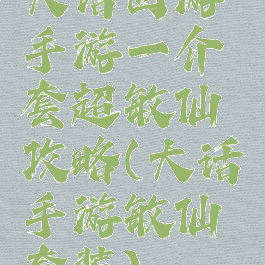 大话西游
手游一介
套超敏仙
攻略(大话
手游敏仙
套装)